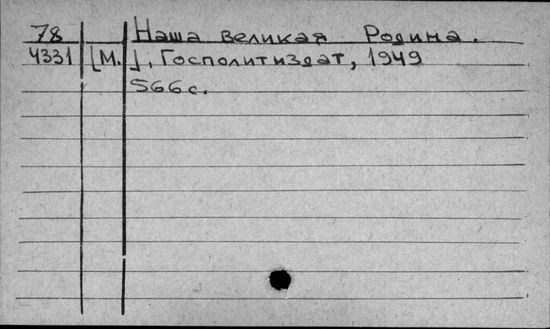 78 Наша великая Родина.
4331 [М.], Госполитиздат, 1949
566 с.